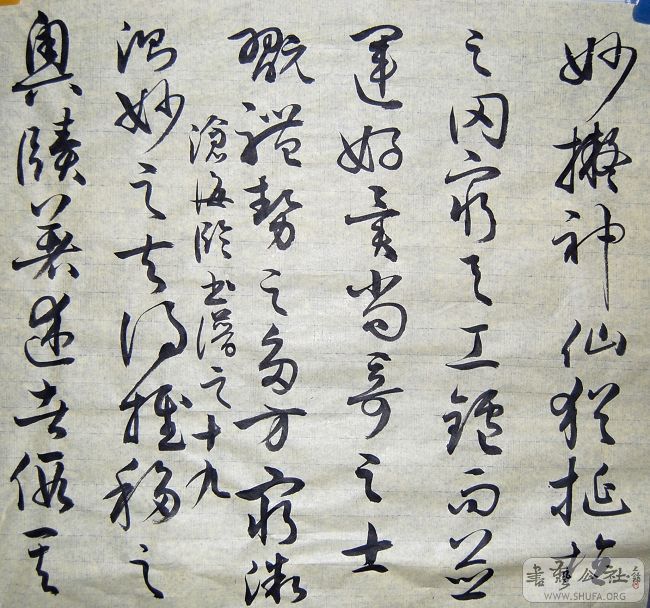 妙擬神仙猶埏埴
之罔窮與工鑪而並
運好異尚奇之士
翫體勢之多方窮微
滄海臨書譜之十九
測妙之夫得推移之
奧賾著述者假其
書藝公社
WWW.SHUFA.ORG